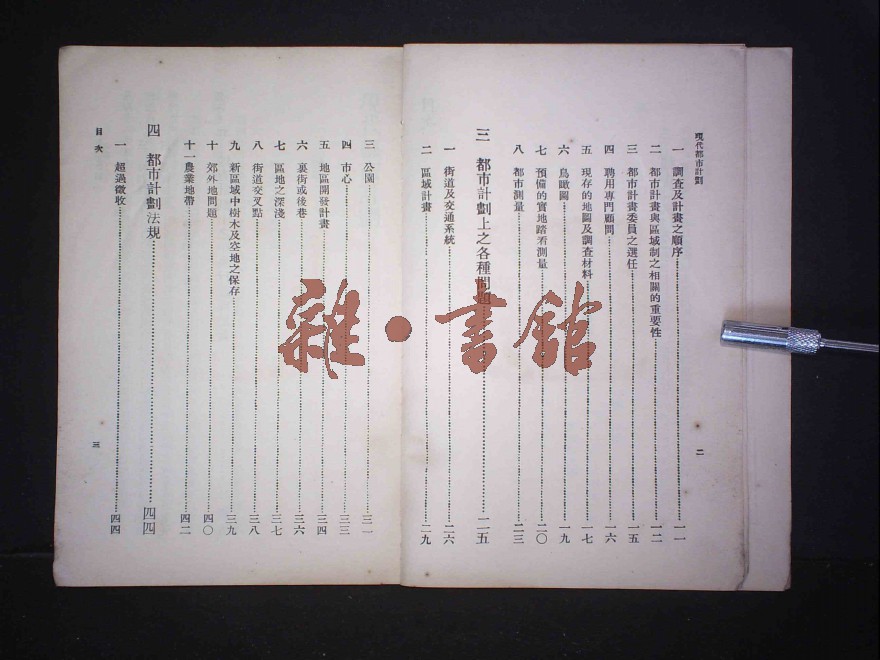 現代都市計劃
一 調查及計畫之順序 一一
二 都市計畫與區域制之相關的重要性 一二
三 都市計畫委員之選任 一五
四 聘用專門顧問 一六
五 現存的地圖及調查材料 一七
六 鳥瞰圖 一九
七 預備的實地踏看測量 二〇
八 都市測量 二三
三 都市計劃上之各種問題 二五
一 街道及交通系統 二六
二 區域計畫 二九
二
三 公園 三一
四 市心 三三
五 地區開發計畫 三四
六 裏街或後巷 三六
七 區地之深淺 三七
八 街道交叉點 三八
九 新區域中樹木及空地之保存 三九
十 郊外地問題 四〇
十一 農業地帶 四二
四 都市計劃法規 四四
一 超過徵收 四四
目次
三
雜・書館